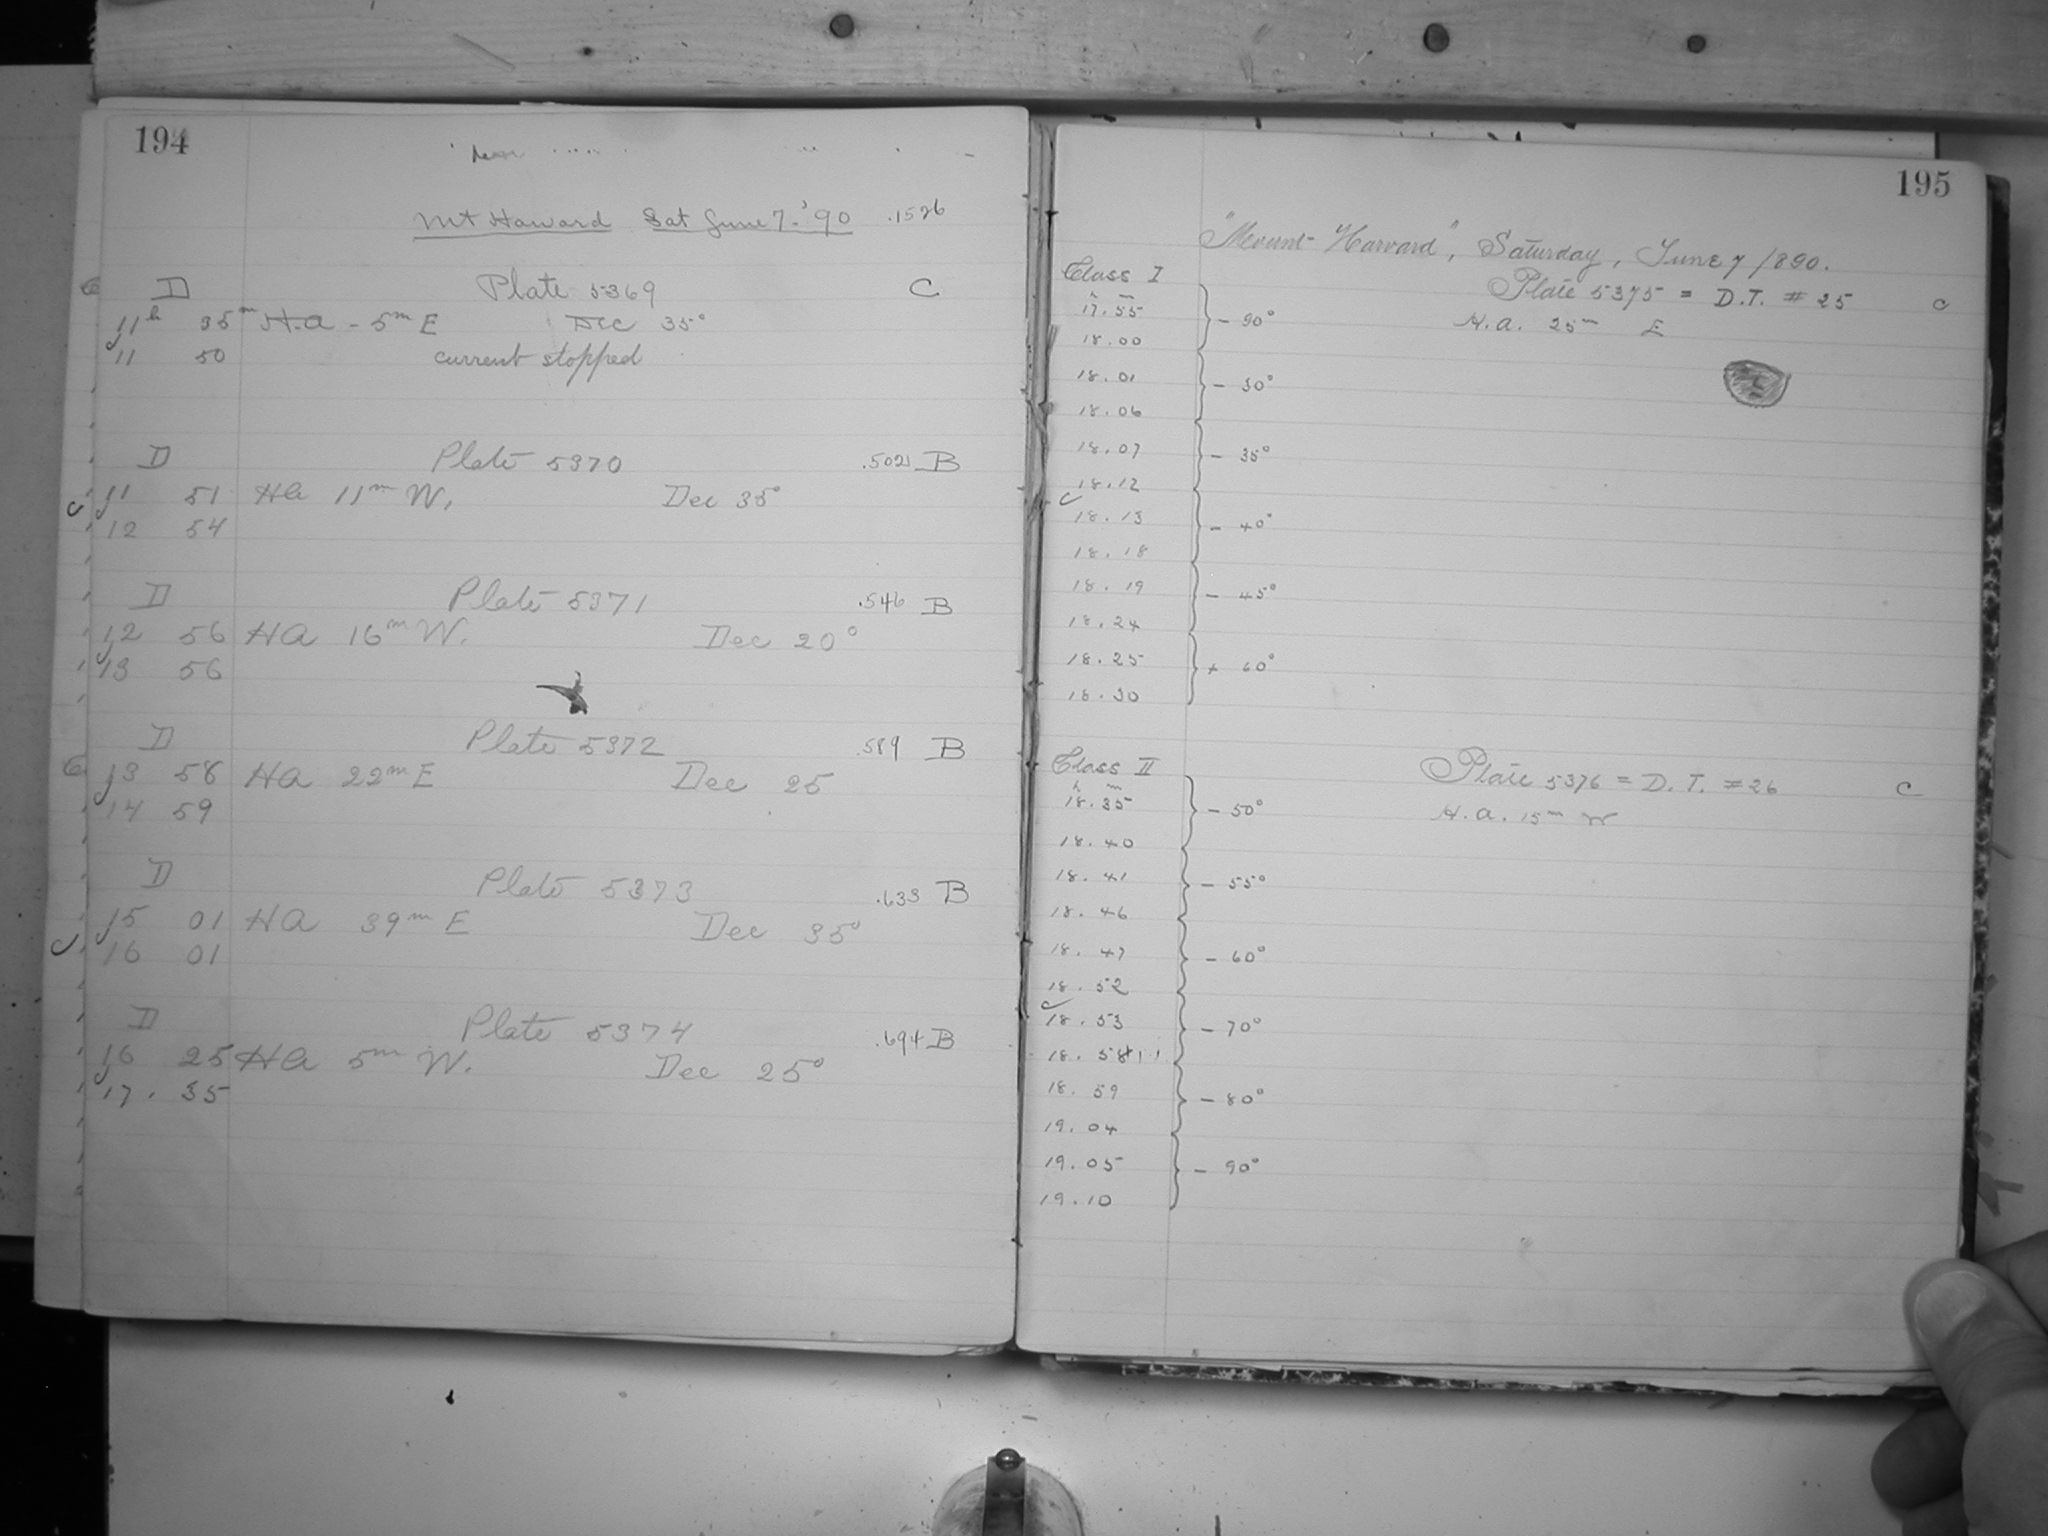 194
Mt Harvard Sat June 7-'90 .1526
D Plate 5369 C
11h 35m H.a - 5m E Dec 35°
11 50 current stopped
D Plate 5370 .502 B
11 51 Ha 11m W. Dec 35°
12 54
D Plate 5371 .546 B
12 56 HA 16m W. Dec 20°
13 56
D Plate 5372 .589 B
13 58 HA 22m E Dec 25
14 59
D Plate 5373 .633 B
15 01 HA 39m E Dec 35°
16 01
D Plate 5374 .694 B
16 25 Ha 5m W. Dec 25°
17. 35
195
"Mount Harvard", Saturday, June 7 1890.
Class I Plate 5375 = D.T. # 25 C
h m
17.55 - 90° H.a. 25m E
18.00
18.01 - 30°
18.06
18.07 - 35°
18.12
18.13 - 40°
18.18
18.19 - 45°
18.24
18.25 + 60°
18.30
Class II Plate 5376 = D.T. # 26 C
h m
18.35 - 50° H.a. 15m W
18.40
18.41 - 55°
18.46
18.47 - 60°
18.52
18.53 - 70°
18.58
18.59 - 80°
19.04
19.05 - 90°
19.10